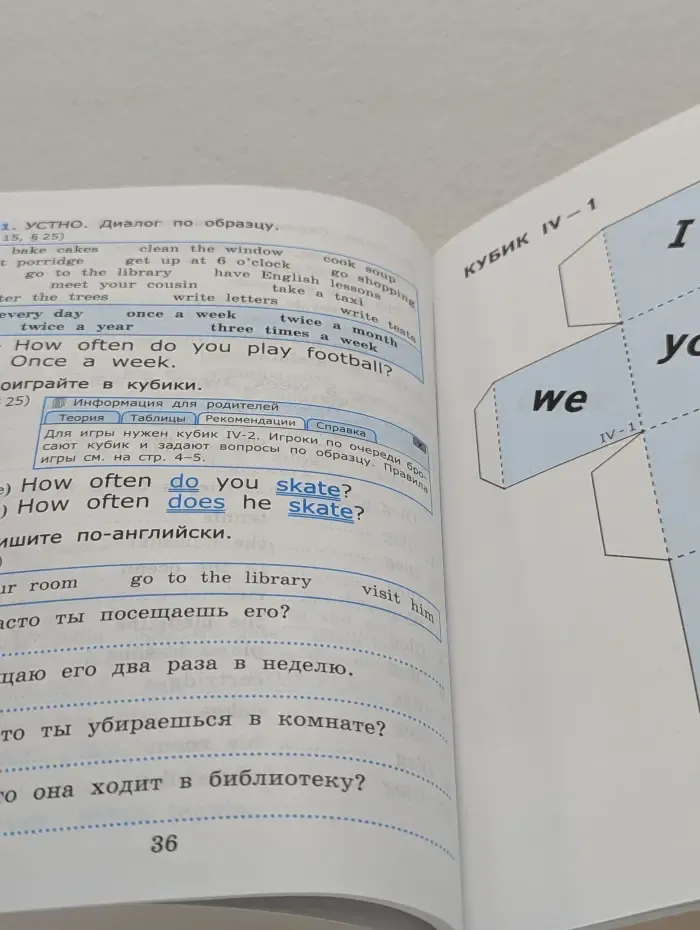 1. УСТНО. Диалог по образцу.
15, § 25)
bake cakes clean the window cook soup
porridge get up at 6 o'clock go shopping
go to the library have English lessons
meet your cousin take a taxi
the trees write letters write tests
every day once a week twice a month
twice a year three times a week
How often do you play football?
Once a week.
оиграйте в кубики.
25)
Информация для родителей
Теория Таблицы Рекомендации Справка
Для игры нужен кубик IV-2. Игроки по очереди бро-
сают кубик и задают вопросы по образцу. Правила
игры см. на стр. 4–5.
How often do you skate?
) How often does he skate?
ишите по-английски.
)
ur room go to the library visit him
асто ты посещаешь его?
щаю его два раза в неделю.
то ты убираешься в комнате?
го она ходит в библиотеку?
36
КУБИК IV – 1
I
we
yo
IV-1